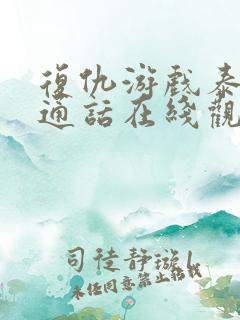 復仇游戲泰
通話在綫觀
司徒静璇/
未经同意禁止转载